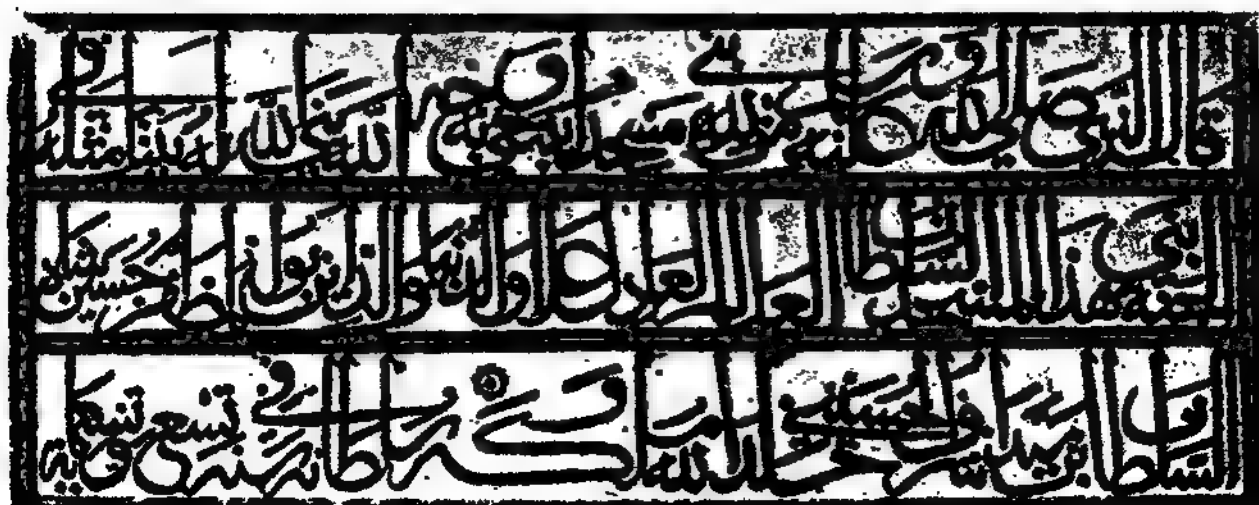 قال النبي صلى الله عليه وسلم من بنى لله مسجدا يبتغي به وجه الله بنى الله له بيتا مثله في
الجنة بنى هذا المسجد السلطان العالم العادل علا الدنيا والدين ابو المظفر حسين شاه
السلطان بن سيد اشرف الحسيني خلد الله ملكه وسلطانه في سنة تسع وتسعمايه